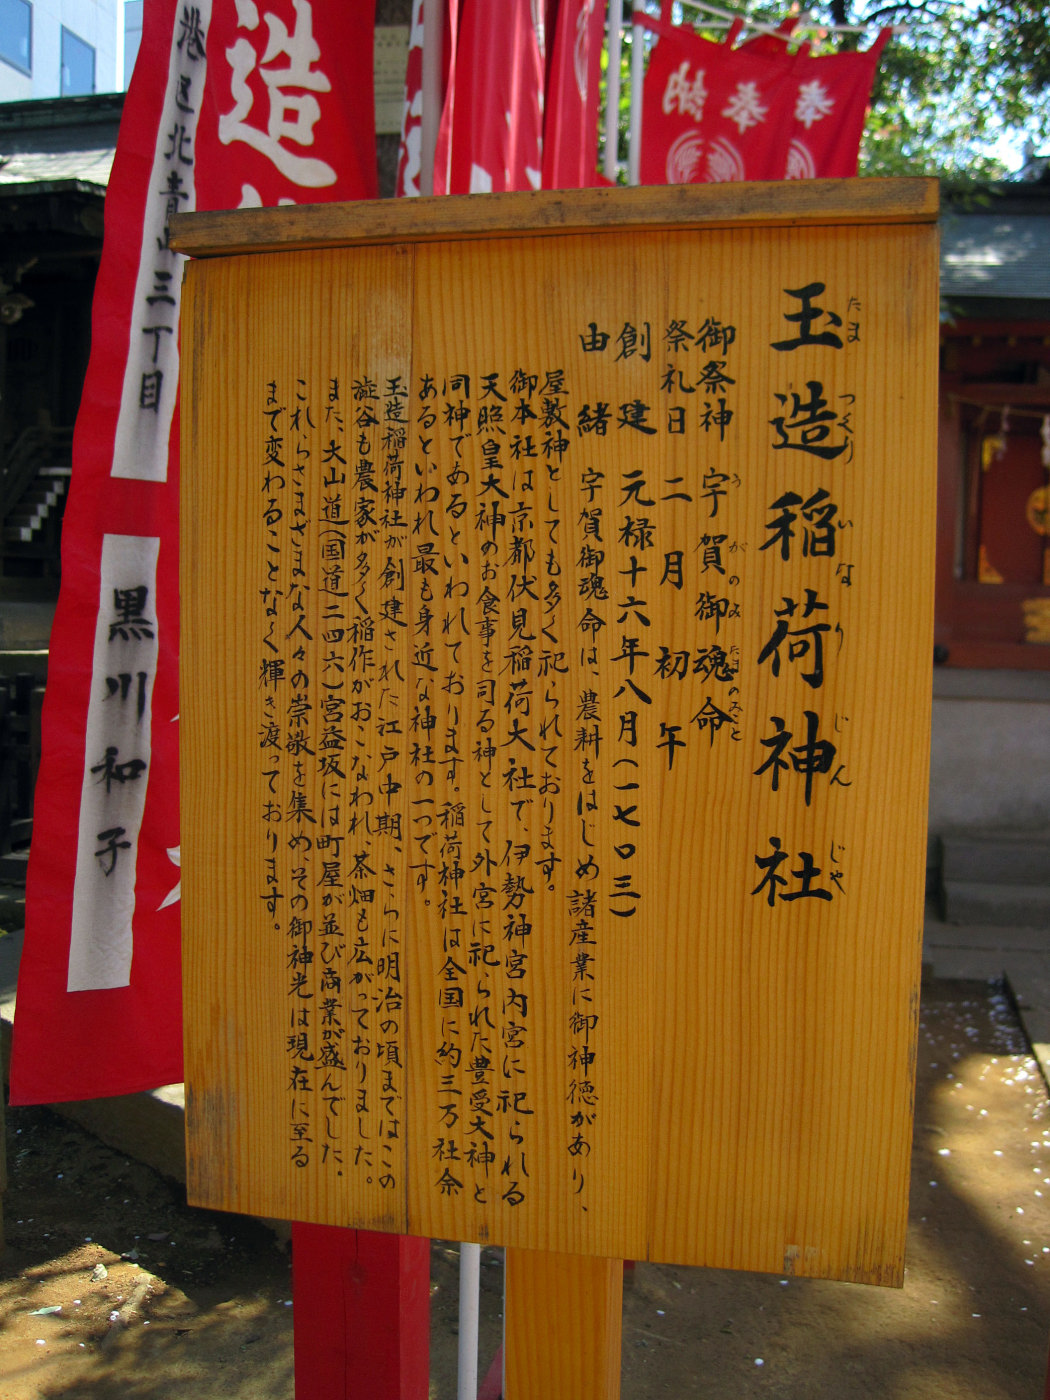 玉造稲荷神社
たま つくり いなり じんじゃ
御祭神 宇賀御魂命
う がの み たまのみこと
祭礼日 二月 初午
創建 元禄十六年八月(一七〇三)
由緒 宇賀御魂命は、農耕をはじめ諸産業に御神徳があり、
屋敷神としても多く祀られております。
御本社は京都伏見稲荷大社で、伊勢神宮内宮に祀られる
天照皇大神のお食事を司る神として外宮に祀られた豊受大神と
同神であるといわれております。稲荷神社は全国に約三万社余
あるといわれ最も身近な神社の一つです。
玉造稲荷神社が創建された江戸中期、さらに明治の頃まではこの
澁谷も農家が多く稲作がおこなわれ、茶畑も広がっておりました。
また、大山道(国道二四六)宮益坂には町屋が並び商業が盛んでした。
これらさまざまな人々の崇敬を集め、その御神光は現在に至る
まで変わることなく輝き渡っております。
奉
奉
納
造
港区北青山三丁目
黒川和子